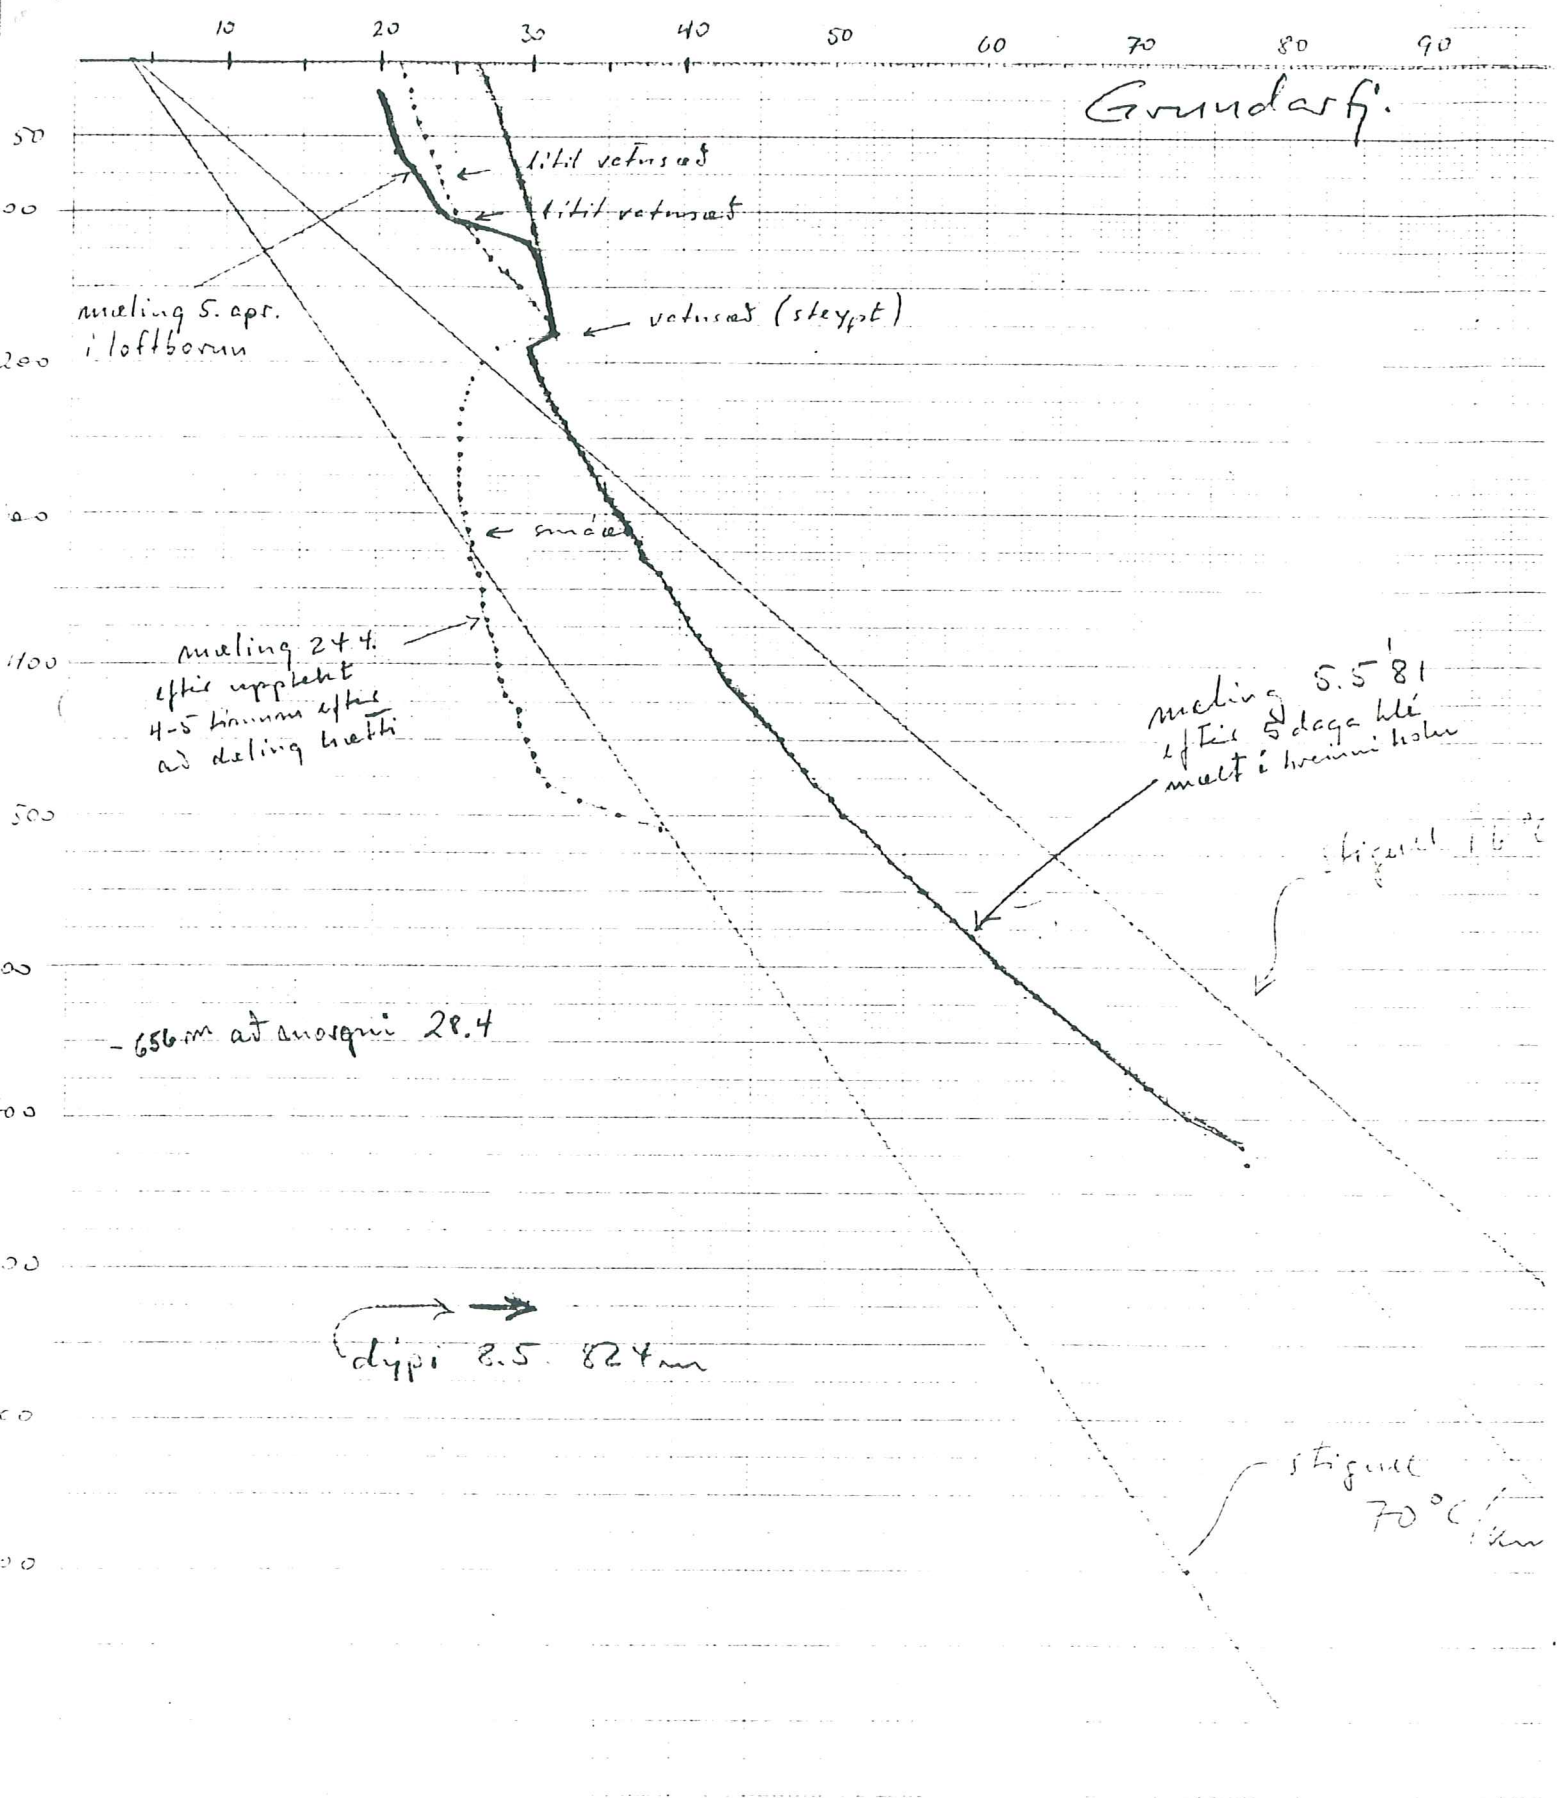 10 20 30 40 50 60 70 80 90
Grundarfj.
50
lítil vatnsæð
00
lítil vatnsæð
mæling 5. apr.
í loftborun
vatnsæð (steypt)
200
smáæð
mæling 24.4.
eftir upptekt
4-5 tímum eftir
að dæling hætti
400
mæling 5.5 '81
eftir 5 daga hlé
mælt í hreinni holu
500
stigull
00
-656m að morgni 28.4
00
00
dýpi 8.5. 824m
00
stigull
70°C/km
00